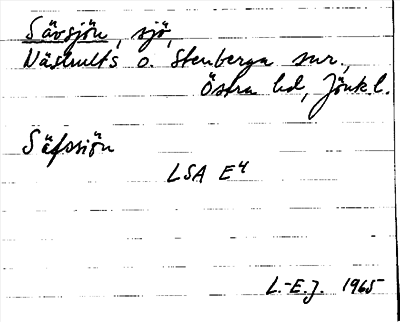 Sävsjön, sjö,
Näshults o. Stenberga snr.,
Östra hd, Jönk.l.
Säfssiön
LSA E4
L.-E.J. 1965